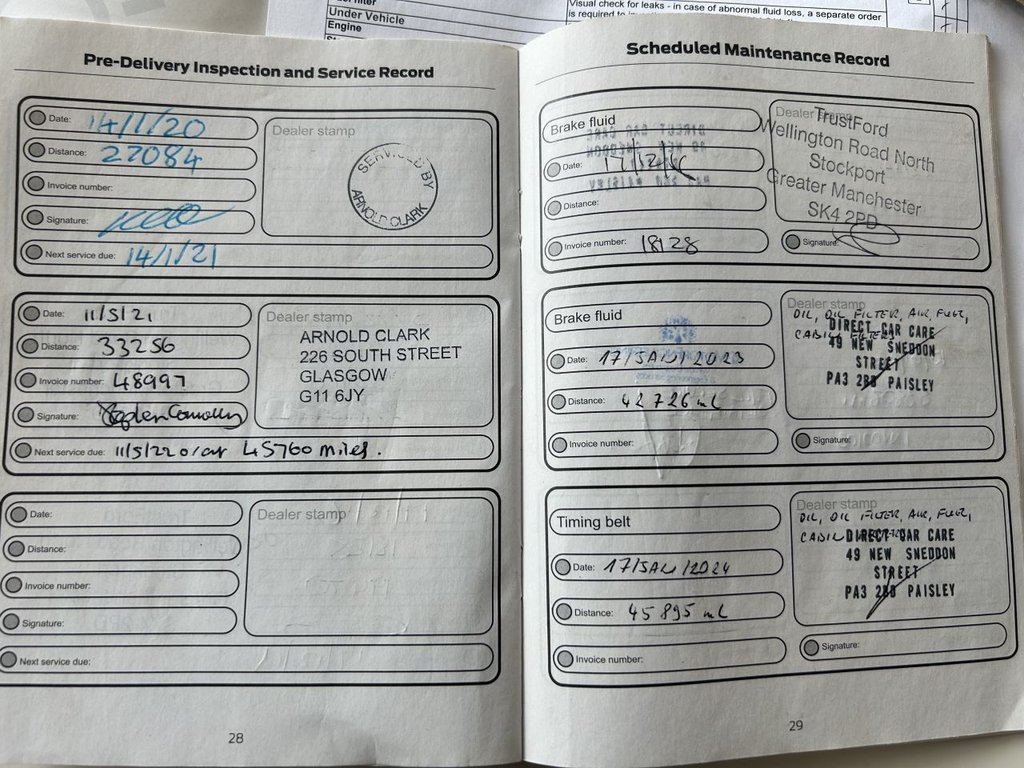 Under Vehicle
Engine
Visual check for leaks - in case of abnormal fluid loss, a separate order
is required to
Pre-Delivery Inspection and Service Record
Date: 14/1/20
Distance: 22084
Invoice number:
Signature:
Next service due: 14/1/21
Dealer stamp
SERVICED BY
ARNOLD CLARK
Date: 11/5/21
Distance: 33256
Invoice number: 48997
Signature:
Next service due: 11/5/22 or at 45760 miles.
Dealer stamp
ARNOLD CLARK
226 SOUTH STREET
GLASGOW
G11 6JY
Date:
Distance:
Invoice number:
Signature:
Next service due:
Dealer stamp
28
Scheduled Maintenance Record
Brake fluid
Date:
Distance:
Invoice number: 18128
Dealer stamp
TrustFord
Wellington Road North
Stockport
Greater Manchester
SK4 2PD
Signature:
Brake fluid
Date: 17/JAN/2023
Distance: 42726 ml
Invoice number:
Dealer stamp
OIL, OIL FILTER, AIR, FUEL,
CABIN FILTERS
DIRECT CAR CARE
49 NEW SNEDDON
STREET
PA3 2BB PAISLEY
Signature:
Timing belt
Date: 17/JAN/2024
Distance: 45895 ml
Invoice number:
Dealer stamp
OIL, OIL FILTER, AIR, FUEL,
DIRECT CAR CARE
49 NEW SNEDDON
STREET
PA3 2BB PAISLEY
Signature:
29